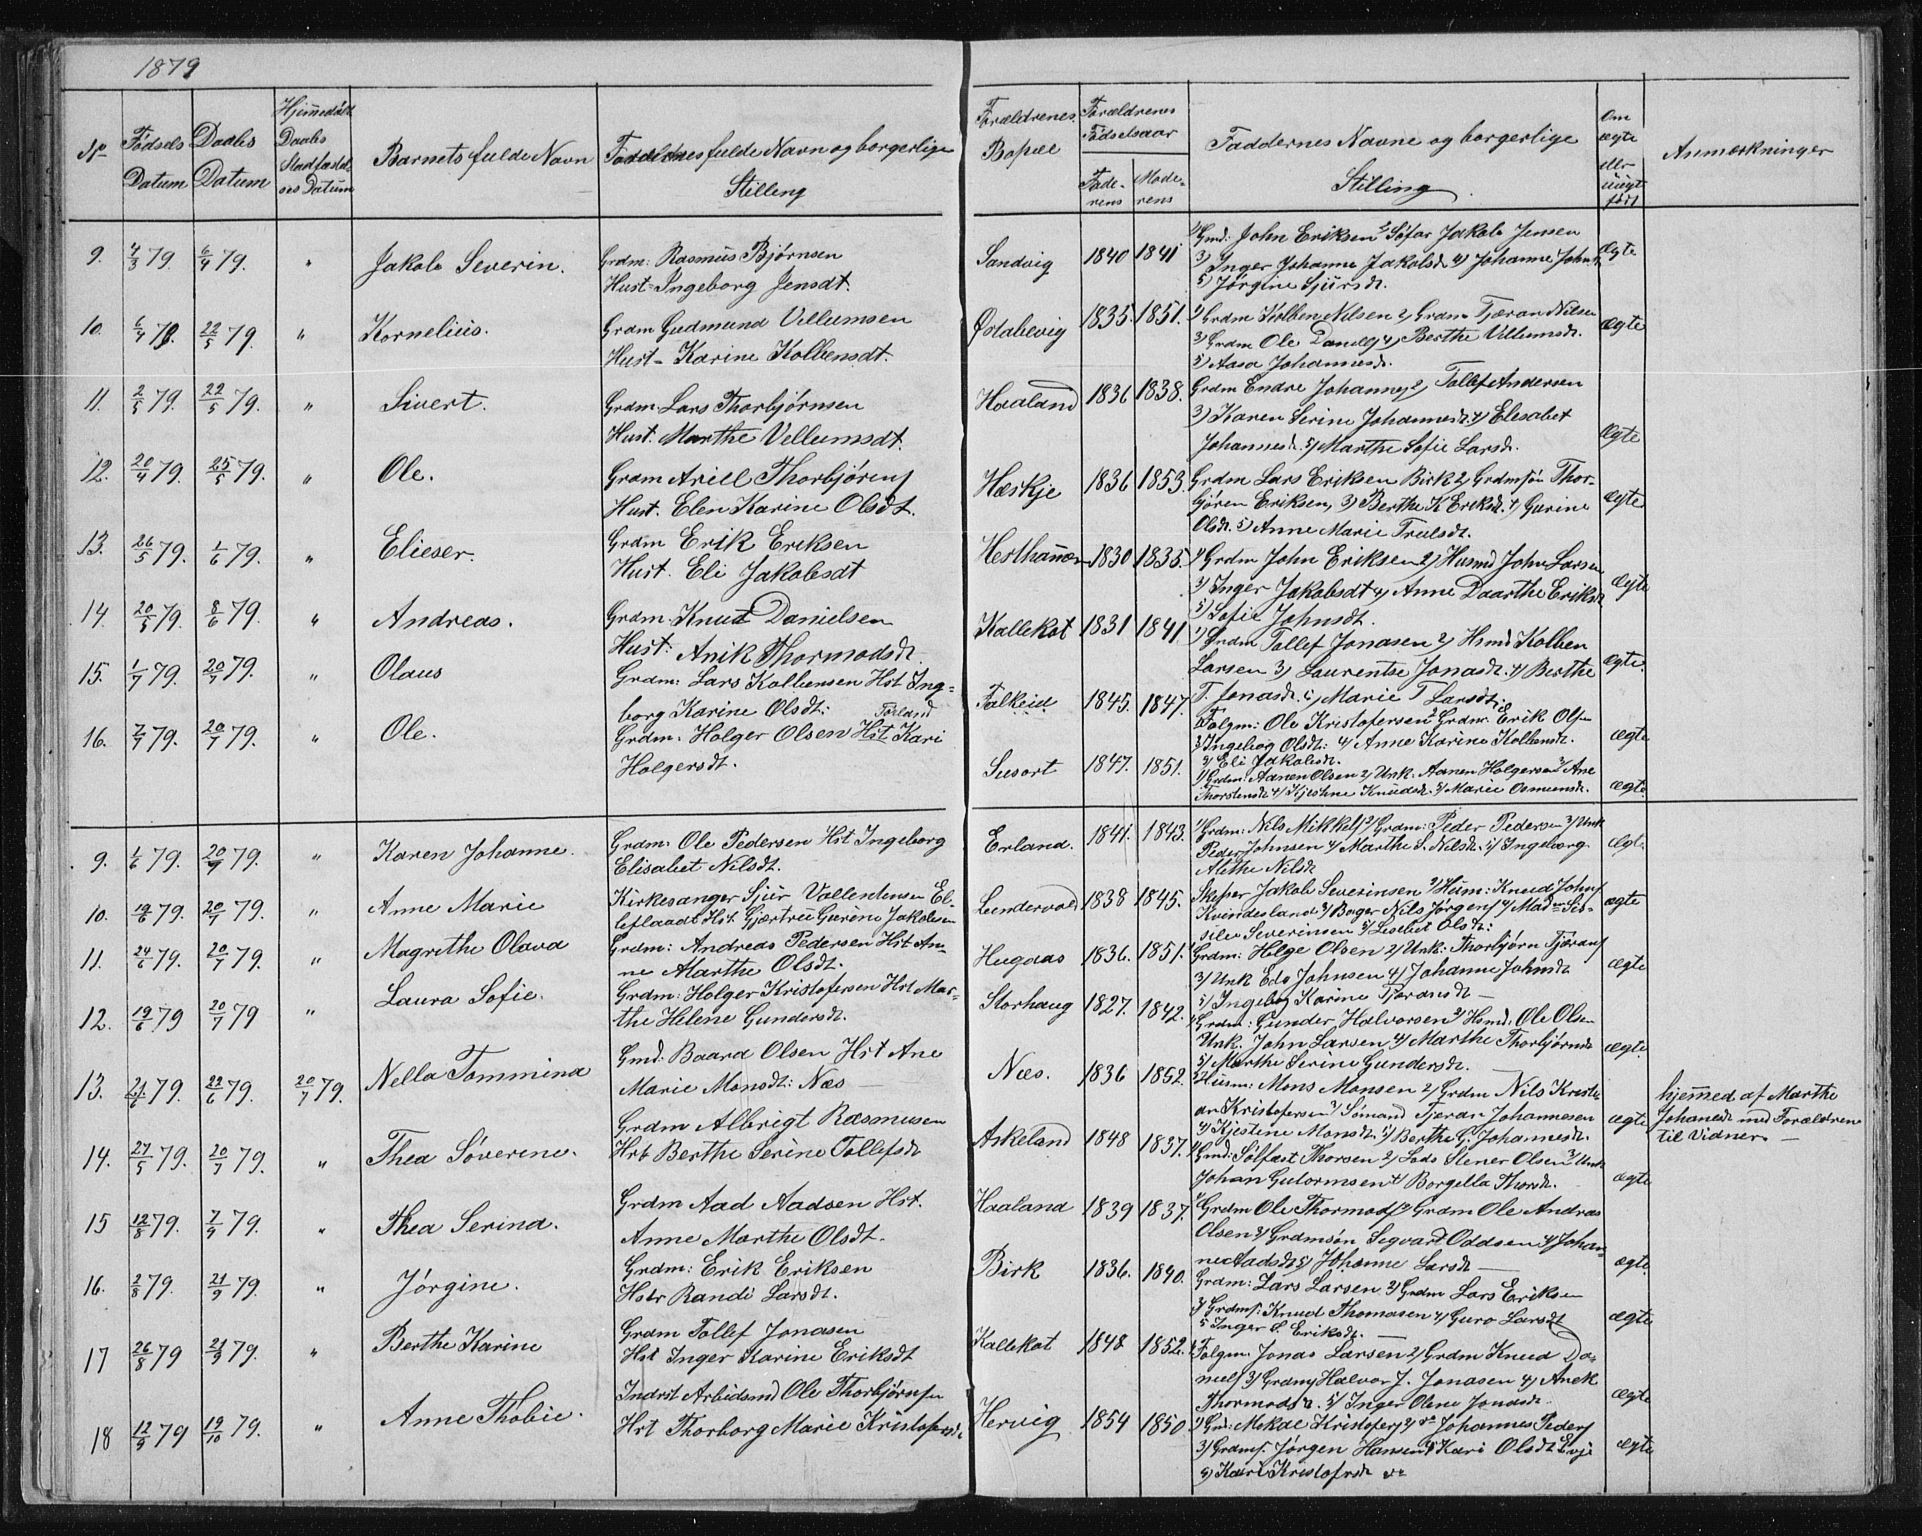 1879
No
Fødsels Datum
Daabs Datum
Hjemmedåbt Daabs Stadfæstelses Datum
Barnets fulde Navn
Forældrenes fulde Navn og borgerlige Stilling
Forældrenes Bopæl
Forældrenes Fødselsaar
Faderens
Moderens
Faddernes Navne og borgerlige Stilling
Om ægte eller uægte født
Anmærkninger
9. 4/3 79. 6/4 79. " Jakob Severin. Grdm: Rasmus Bjørnsen
Hust= Ingeborg Jensdt.
Sandvig 1840 1841 1) Gmd: John Eriksen 2) Jakob Jensen
3) Inger Johanne Jakobsdt 4) Johanne Johnsdt
5) Jørgine Sjursdt. Ægte
10. 6/4 79. 22/5 79. " Kornelius. Grdm Gudmund Villumsen
Hust= Karine Kolbensdt.
Østabøvig 1835. 1851. 1) Grdm Kolben Nilsen 2) Grdm Tjæran Nilsen
3) Grdm Ole 4) Berthe Villumsdt.
5) Aasa Johannesdt. ægte
11. 2/5 79. 22/5 79. " Sivert. Grdm. Lars Thorbjørnsen
Hust. Marthe Vellumsdt.
Haaland 1836 1838. Grdm Endre Johannes 2) Tollef Andersen
3) Karen Serine Johannesdt. 4) Elesabet
Johannesdt. 5) Marthe Sofie Larsdt. Ægte
12. 20/4 79. 25/5 79. " Ole. Grdm Ariel Thorbjørens
Hust. Elen Karine Olsdt.
Hæskje 1836 1853. Grdm Lars Eriksen Birk 2) Grdmsøn Thor-
bjøren Eriksen, 3) Berthe K Eriksdt. 4) Gurine
Olsdt. 5) Anne Marie Trulsdt. ægte
13. 26/5 79. 1/6 79. " Elieser. Grdm Erik Eriksen
Hust. Eli Jakobsdt
Hesthammer 1830 1835. 1) Grdm John Eriksen 2) Husmd John Larsen
3) Inger Jakobsdt 4) Anne Daarthe Eriksdt
5) Sofie Johnsdt. ægte
14. 20/5 79. 8/6 79. " Andreas. Grdm. Knut Danielsen
Hust: Anik Thormodsdt.
Kallekot 1831 1841. 1) Grdm Tollef Jonasen 2) Hsmd Kolben
Larsen 3) Laurentse Jonasdt. 4) Berthe
T. Jonasdt. 5) Marie T Larsdt. ægte.
15. 1/7 79. 20/7 79. " Olaus Grdm: Lars Kolbensen Hst Inge-
borg Karine Olsdt:
Falkeid 1845. 1847. Folgm: Ole Kristofersen 2) Grdm: Erik Olsen
3) Ingebog Olsdt: 4) Anne Karine Kolbensdt.
5) Eli Jakobsdt. ægte
16. 7/7 79. 20/7 79. " Ole. Førland
Grdm. Holger Olsen Hst Kari
Holgersdt.
Susort 1847. 1851. 1) Grdm: Aanen Olsen 2) Unk. Aanen Holgersen 3) Ane
Thorstensdt 4) Kjestine Knudsdt. 5) Marie Osmunsdt. ægte.
9. 1/6 79. 20/7 79. " Karen Johanne. Grdm. Ole Pedersen Hst Ingeborg
Elisabet Nilsdt.
Erland. 1841. 1843. 1) Grdm: Nils Mikkels 2) Grdm: Peder Pedersen 3) Unk
Peder Johnsen 4) Marthe S. Nilsdt. 5) Ingeborg
Alethe Nilsdt ægt.
10. 19/6 79. 20/7 79. " Anne Marie Kirkesanger Sjur Vallentensen El-
lefladt Hst. Gjærtrue Gurine Jakobsen
Lundervold 1838 1845. Skepser Jakob Severinsen 2) Husm: Knud Johns
Kvindesland 3) Borger Nils Jørgens 4) Madm Sis-
silie Severinsen 5) Lisebet Olsdt: ægte
11. 24/6 79. 20/7 79. " Magrethe Olava Grdm: Andreas Pedersen Hst An-
ne Marthe Olsdt.
Hugaas 1836. 1851. Grdm: Helge Olsen 2) Unk: Thorbjørn Tjærans
3) Unk Eds Johnsen 4) Johanne Johnsdt
5) Ingebog Karine Tjæransdt — ægte
12. 19/6 79 20/7 79 " Laura Sofie. Grdm: Holger Kristofersen Hst Mar-
the Helene Gundersdt.
Storhaug 1827. 1842. 1) Grdm: Gunder Halvorsen 2) Hsmd. Ole Olsen
Unk. John Larsen 4) Marthe Thorbjørnsdt
5) Marthe Serine Gundersdt. ægte
13. 21/6 79. 22/6 79. 20/7 79. Nella Tommina Gmd: Baard Olsen Hst Ane
Marie Monsdt: Næs —
Næs. 1836 1852. Husm: Mons Monsen 2) Grdm Nils Kristi-
an Kristofersen 3) Sømand Tjæran Johannesen
4) Kjestene Monsdt. 5) Berthe G. Johannesdt. ægte hjemmed af Marthe
Johanesdt med Forældrene
til Vidner —
14. 27/5 79. 20/7 79. " Thea Søverine. Grdm Albrigt Rasmusen
Hst Berthe Serine Tollefsdt
Askeland 1848 1837. Gmd: Solfæst Thorsen 2) Lods Stener Olsen 3) Unk
Johan Gutormsen 4) Borgella Thorsdt. ægte
15 12/8 79. 7/9 79. " Thea Serina. Grdm Aad Aadsen Hst.
Anne Marthe Olsdt.
Haaland 1839 1837. 1) Grdm Ole Thormods 2) Grdm Ole Andreas
Olsen 3) Grdmsøn Segvard Oddsen 4) Johan-
ne Aadsdt 5) Johanne Larsdt — ægte.
16. 2/8 79. 21/9 79. " Jørgine. Grdm: Erik Eriksen
Hstr Randi Larsdt.
Birk 1836. 1840. Grdm: Lars Larsen 2) Grdm Lars Eriksen
3) Grdms. Knud Thomasen 4) Guro Larsdt
5 Inger S. Eriksdt. — ægte
17 26/8 79 21/9 79. " Berthe Karine Grdm Tollef Jonasen
Hst Inger Karine Eriksdt
Kallekot 1848 1852. 1) Folgm. Jonas Larsen 2) Grdm Knud Da-
niels 3) Grdms Halvor J. Jonasen 4) Anek
Thormodsdt. 5) Inger Olene Jonasdt. ægte
18 12/9 79 19/10 79. " Anne Thobie. Indrst Arbeidsmd Ole Thorbjørnsen
Hst Thorborg Marie Kristofersdt
Hervig 1854 1850 1) Grd: Mekal Kristofers 2) do Johannes Peders
3) Grdms. Jørgen Hansen 4) Kari Olsdt Evje
5) Kari Kristofersdt do ægte